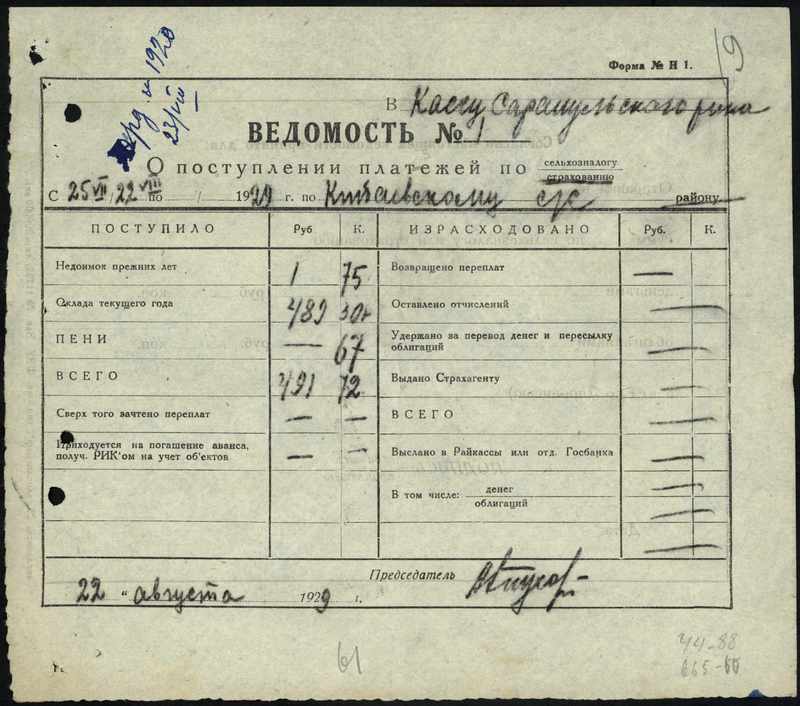 19
Форма № Н 1.
23/VIII
В Кассу Сарапульского рика
ВЕДОМОСТЬ № 1
О ПОСТУПЛЕНИИ ПЛАТЕЖЕЙ ПО сельхозналогу
страхованию
С 25 VII / 22 VIII по / 1929 г. по Китаевскому с/с району
ПОСТУПИЛО Руб К. ИЗРАСХОДОВАНО Руб. К.
Недоимок прежних лет 1 75 Возвращено переплат —
Оклада текущего года 489 30 Оставлено отчислений —
ПЕНИ — 67 Удержано за перевод денег и пересылку
облигаций —
ВСЕГО 491 72 Выдано Страхагенту —
Сверх того зачтено переплат — — ВСЕГО —
Приходуется на погашение аванса,
получ. РИК'ом на учет об'ектов — — Выслано в Райкассы или отд. Госбанка —
В том числе: денег —
облигаций —
—
Председатель
22 " августа 1929 г.
61
44-88
665-60